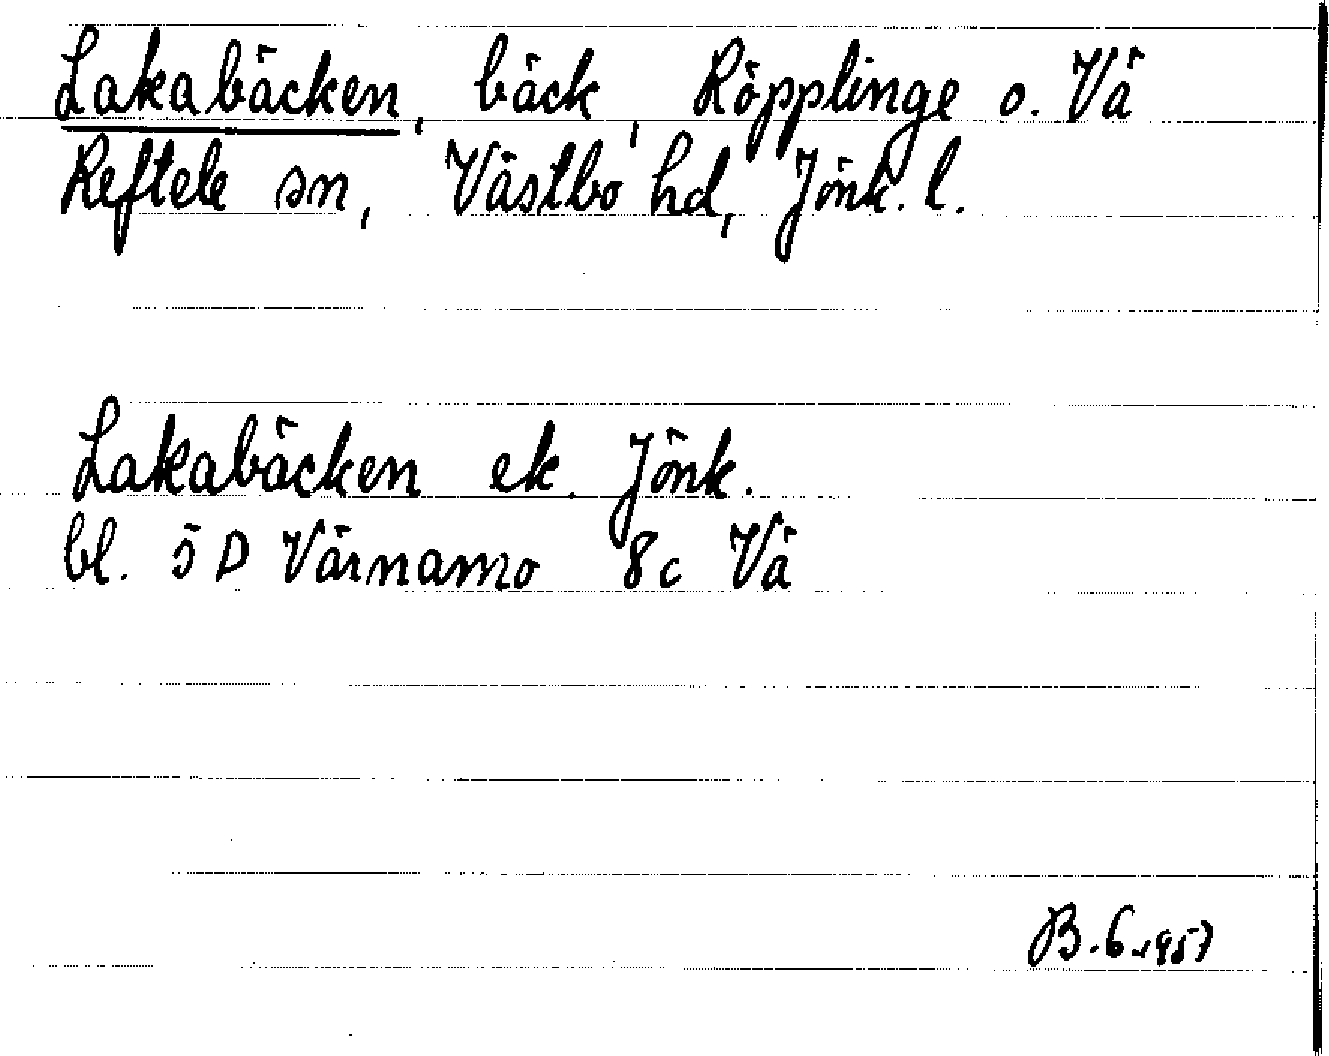 Lakabäcken, bäck, Röpplinge o. Vä
Reftele sn, Västbo hd, Jönk. l.
Lakabäcken ek. Jönk.
bl. 5 D Värnamo 8c Vä
B.G. 1957